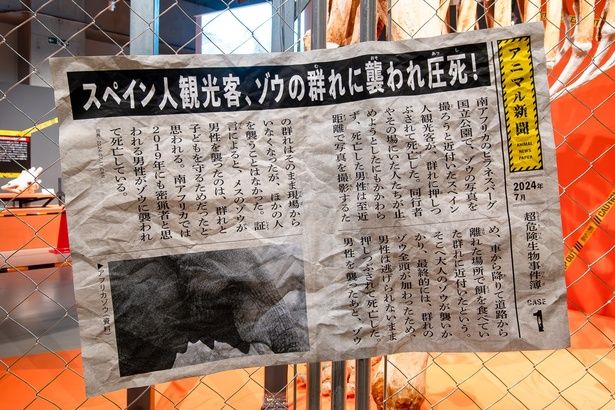 スペイン人観光客、ゾウの群れに襲われ圧死!
アニマル新聞
ANIMAL
NEWS
PAPER
2024年
7月
超危険生物事件簿
CASE
1
南アフリカのピラネスバーグ
国立公園で、ゾウの写真を
撮ろうと近付いたスペイン
人観光客が、群れに押しつ
ぶされて死亡した。同行者
やその場にいた人たちが止
めようとしたにもかかわら
ず、死亡した男性は至近
距離で写真を撮影するた
め、車から降りて道路から
離れた場所で餌を食べてい
た群れに近付いたという。
そこへ大人のゾウが襲いか
かり、最終的には、群れの
ゾウ全頭が加わったため、
男性は逃げられないまま
押しつぶされ死亡した。
男性を襲ったあと、ゾウ
の群れはそのまま現場から
いなくなったが、ほかの人
を襲うことはなかった。証
言によると、メスのゾウが
男性を襲ったのは、群れと
子どもを守るためだったと
思われる。南アフリカでは
2019年にも密猟者と思
われる男性がゾウに襲われ
て死亡している。
▶アフリカゾウ(資料)